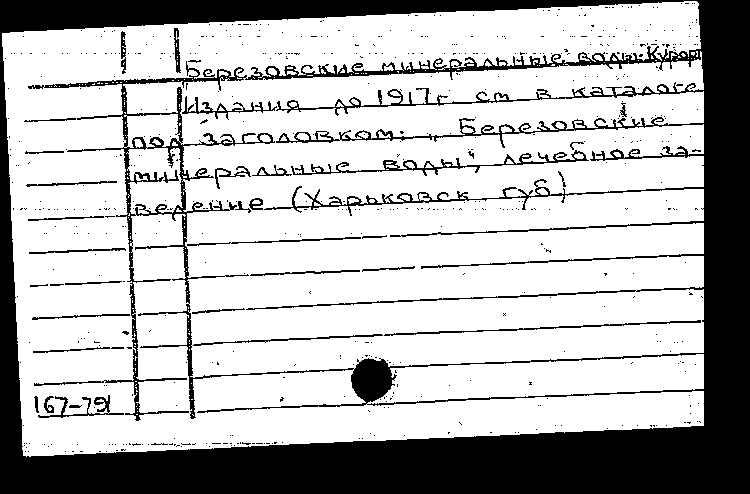 Березовские минеральные воды. Курорт
Издания до 1917г. см в каталоге
под заголовком: „Березовские
минеральные воды", лечебное за-
ведение (Харьковск губ)
167-791